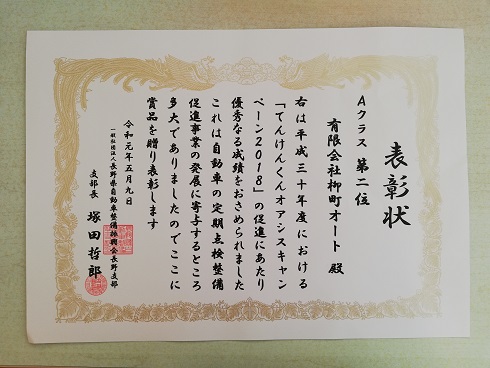 表彰状
Aクラス 第二位
有限会社柳町オート 殿
右は平成三十年度における
「てんけんくんオアシスキャン
ペーン2018」の促進にあたり
優秀なる成績をおさめられました
これは自動車の定期点検整備
促進事業の発展に寄与するところ
多大でありましたのでここに
賞品を贈り表彰します
令和元年五月九日
一般社団法人長野県自動車整備振興会長野支部
支部長 塚田哲郎